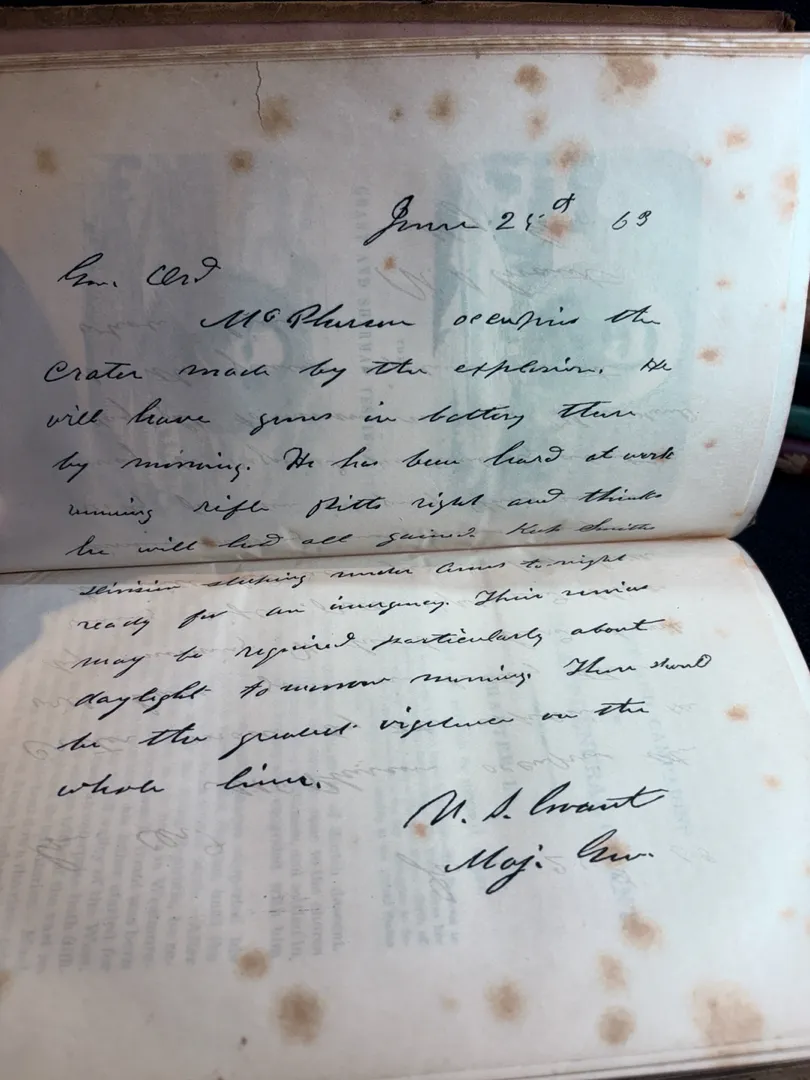 June 25th 63
Gen. Ord
McPherson occupies the
crater made by the explosion. He
will have guns in battery there
by morning. He has been hard at work
running rifle pitts right and thinks
he will hold all gained. Keep Smiths
Division sleeping under arms to-night
ready for an emergency. Their services
may be required particularly about
daylight tomorrow morning. There should
be the greatest vigilence on the
whole line.
U. S. Grant
Maj. Gen.